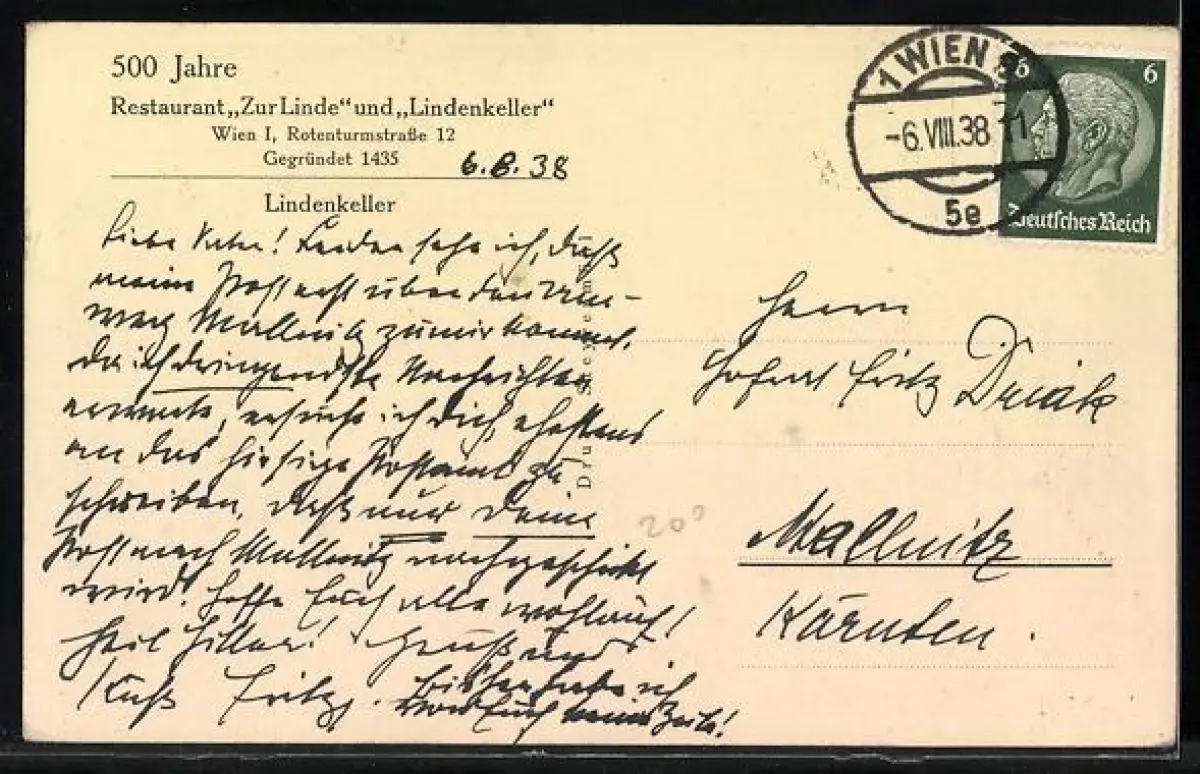 500 Jahre
Restaurant „Zur Linde“ und „Lindenkeller“
Wien I, Rotenturmstraße 12
Gegründet 1435
6.8.38
Lindenkeller
Liebe Vater! Leider sehe ich, daß
meine Post erst über den Um-
weg Mallnitz zu mir kommt.
Da ich dringendste Nachrichten
erwarte, ersuche ich Dich, ehestens
an das hiesige Postamt zu
schreiben, daß nur Deine
Post nach Mallnitz nachgeschickt
wird. Hoffe Euch alle wohlauf!
Heil Hitler! Gruß und
Kuß Fritz. Bisher habe ich
von Euch keine Zeile!
1 WIEN 8
-6.VIII.38
11
5e
6
6
Deutsches Reich
Herrn
Hofrat Fritz
Mallnitz
Kärnten.
200